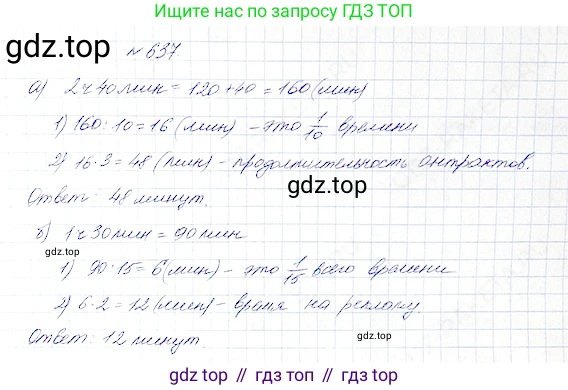 Ищите нас по запросу ГДЗ ТОП
gdz.top
№637
а) 2ч 40мин = 120+40 = 160 (мин)
1) 160:10=16 (мин) - это 1/10 времени
2) 16·3=48 (мин) - продолжительность антрактов.
Ответ: 48 минут.
gdz.top
б) 1ч 30мин = 90мин
gdz.top
gdz.top
1) 90:15=6(мин) - это 1/15 всего времени
2) 6·2=12 (мин) - время на рекламу.
Ответ: 12 минут
gdz.top // гдз.топ // гдз топ